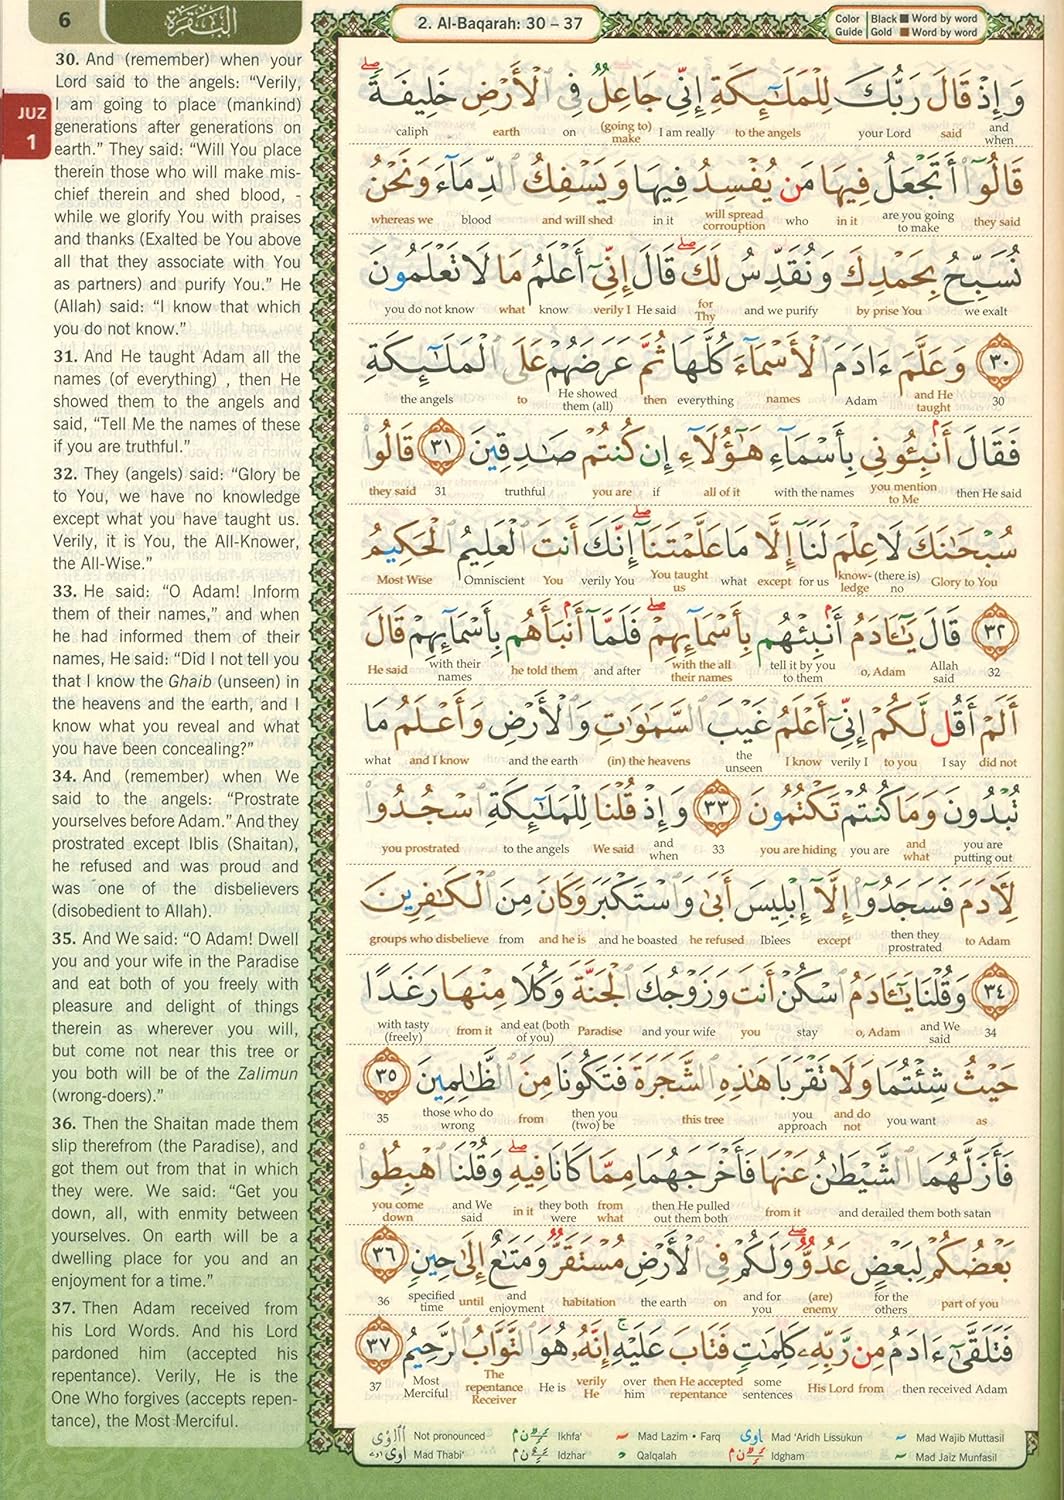 6
البقرة
2. Al-Baqarah: 30 – 37
Color Guide
Black Word by word
Gold Word by word
JUZ
1
30. And (remember) when your
Lord said to the angels: “Verily,
I am going to place (mankind)
generations after generations on
earth.” They said: “Will You place
therein those who will make mis-
chief therein and shed blood, -
while we glorify You with praises
and thanks (Exalted be You above
all that they associate with You
as partners) and purify You.” He
(Allah) said: “I know that which
you do not know.”
31. And He taught Adam all the
names (of everything) , then He
showed them to the angels and
said, “Tell Me the names of these
if you are truthful.”
32. They (angels) said: “Glory be
to You, we have no knowledge
except what you have taught us.
Verily, it is You, the All-Knower,
the All-Wise.”
33. He said: “O Adam! Inform
them of their names,” and when
he had informed them of their
names, He said: “Did I not tell you
that I know the Ghaib (unseen) in
the heavens and the earth, and I
know what you reveal and what
you have been concealing?”
34. And (remember) when We
said to the angels: “Prostrate
yourselves before Adam.” And they
prostrated except Iblis (Shaitan),
he refused and was proud and
was one of the disbelievers
(disobedient to Allah).
35. And We said: “O Adam! Dwell
you and your wife in the Paradise
and eat both of you freely with
pleasure and delight of things
therein as wherever you will,
but come not near this tree or
you both will be of the Zalimun
(wrong-doers).”
36. Then the Shaitan made them
slip therefrom (the Paradise), and
got them out from that in which
they were. We said: “Get you
down, all, with enmity between
yourselves. On earth will be a
dwelling place for you and an
enjoyment for a time.”
37. Then Adam received from
his Lord Words. And his Lord
pardoned him (accepted his
repentance). Verily, He is the
One Who forgives (accepts repen-
tance), the Most Merciful.
وَإِذْ قَالَ رَبُّكَ لِلْمَلَٰٓئِكَةِ إِنِّى جَاعِلٌ فِى ٱلْأَرْضِ خَلِيفَةً ۖ
caliph earth on (going to) make I am really to the angels your Lord said and when
قَالُوٓا۟ أَتَجْعَلُ فِيهَا مَن يُفْسِدُ فِيهَا وَيَسْفِكُ ٱلدِّمَآءَ وَنَحْنُ
whereas we blood and will shed in it will spread corrouption who in it are you going to make they said
نُسَبِّحُ بِحَمْدِكَ وَنُقَدِّسُ لَكَ ۖ قَالَ إِنِّىٓ أَعْلَمُ مَا لَا تَعْلَمُونَ
you do not know what know verily I He said for Thy and we purify by prise You we exalt
٣٠ وَعَلَّمَ ءَادَمَ ٱلْأَسْمَآءَ كُلَّهَا ثُمَّ عَرَضَهُمْ عَلَى ٱلْمَلَٰٓئِكَةِ
the angels to He showed them (all) then everything names Adam and He taught 30
فَقَالَ أَنۢبِـُٔونِى بِأَسْمَآءِ هَٰٓؤُلَآءِ إِن كُنتُمْ صَٰدِقِينَ ٣١ قَالُوا۟
they said 31 truthful you are if all of it with the names you mention to Me then He said
سُبْحَٰنَكَ لَا عِلْمَ لَنَآ إِلَّا مَا عَلَّمْتَنَآ ۖ إِنَّكَ أَنتَ ٱلْعَلِيمُ ٱلْحَكِيمُ
Most Wise Omniscient You verily You You taught us what except for us know-ledge (there is) no Glory to You
٣٢ قَالَ يَٰٓـَٔادَمُ أَنۢبِئْهُم بِأَسْمَآئِهِمْ ۖ فَلَمَّآ أَنۢبَأَهُم بِأَسْمَآئِهِمْ قَالَ
He said with their names he told them and after with the all their names tell it by you to them o, Adam Allah said 32
أَلَمْ أَقُل لَّكُمْ إِنِّىٓ أَعْلَمُ غَيْبَ ٱلسَّمَٰوَٰتِ وَٱلْأَرْضِ وَأَعْلَمُ مَا
what and I know and the earth (in) the heavens the unseen I know verily I to you I say did not
تُبْدُونَ وَمَا كُنتُمْ تَكْتُمُونَ ٣٣ وَإِذْ قُلْنَا لِلْمَلَٰٓئِكَةِ ٱسْجُدُوا۟
you prostrated to the angels We said and when 33 you are hiding you are and what you are putting out
لِـَٔادَمَ فَسَجَدُوٓا۟ إِلَّآ إِبْلِيسَ أَبَىٰ وَٱسْتَكْبَرَ وَكَانَ مِنَ ٱلْكَٰفِرِينَ
groups who disbelieve from and he is and he boasted he refused Iblees except then they prostrated to Adam
٣٤ وَقُلْنَا يَٰٓـَٔادَمُ ٱسْكُنْ أَنتَ وَزَوْجُكَ ٱلْجَنَّةَ وَكُلَا مِنْهَا رَغَدًا
with tasty (freely) from it and eat (both of you) Paradise and your wife you stay o, Adam and We said 34
حَيْثُ شِئْتُمَا وَلَا تَقْرَبَا هَٰذِهِ ٱلشَّجَرَةَ فَتَكُونَا مِنَ ٱلظَّٰلِمِينَ ٣٥
35 those who do wrong from then you (two) be this tree you approach and do not you want as
فَأَزَلَّهُمَا ٱلشَّيْطَٰنُ عَنْهَا فَأَخْرَجَهُمَا مِمَّا كَانَا فِيهِ ۖ وَقُلْنَا ٱهْبِطُوا۟
you come down and We said in it they both were from what then He pulled out them both from it and derailed them both satan
بَعْضُكُمْ لِبَعْضٍ عَدُوٌّ ۖ وَلَكُمْ فِى ٱلْأَرْضِ مُسْتَقَرٌّ وَمَتَٰعٌ إِلَىٰ حِينٍ ٣٦
36 specified time until and enjoyment habitation the earth on and for you (are) enemy for the others part of you
فَتَلَقَّىٰٓ ءَادَمُ مِن رَّبِّهِۦ كَلِمَٰتٍ فَتَابَ عَلَيْهِ ۚ إِنَّهُۥ هُوَ ٱلتَّوَّابُ ٱلرَّحِيمُ ٣٧
37 Most Merciful The repentance Receiver He is verily He over him then He accepted repentance some sentences His Lord from then received Adam
Not pronounced Ikhfa' Mad Lazim • Farq Mad 'Aridh Lissukun Mad Wajib Muttasil
Mad Thabi' Idzhar Qalqalah Idgham Mad Jaiz Munfasil